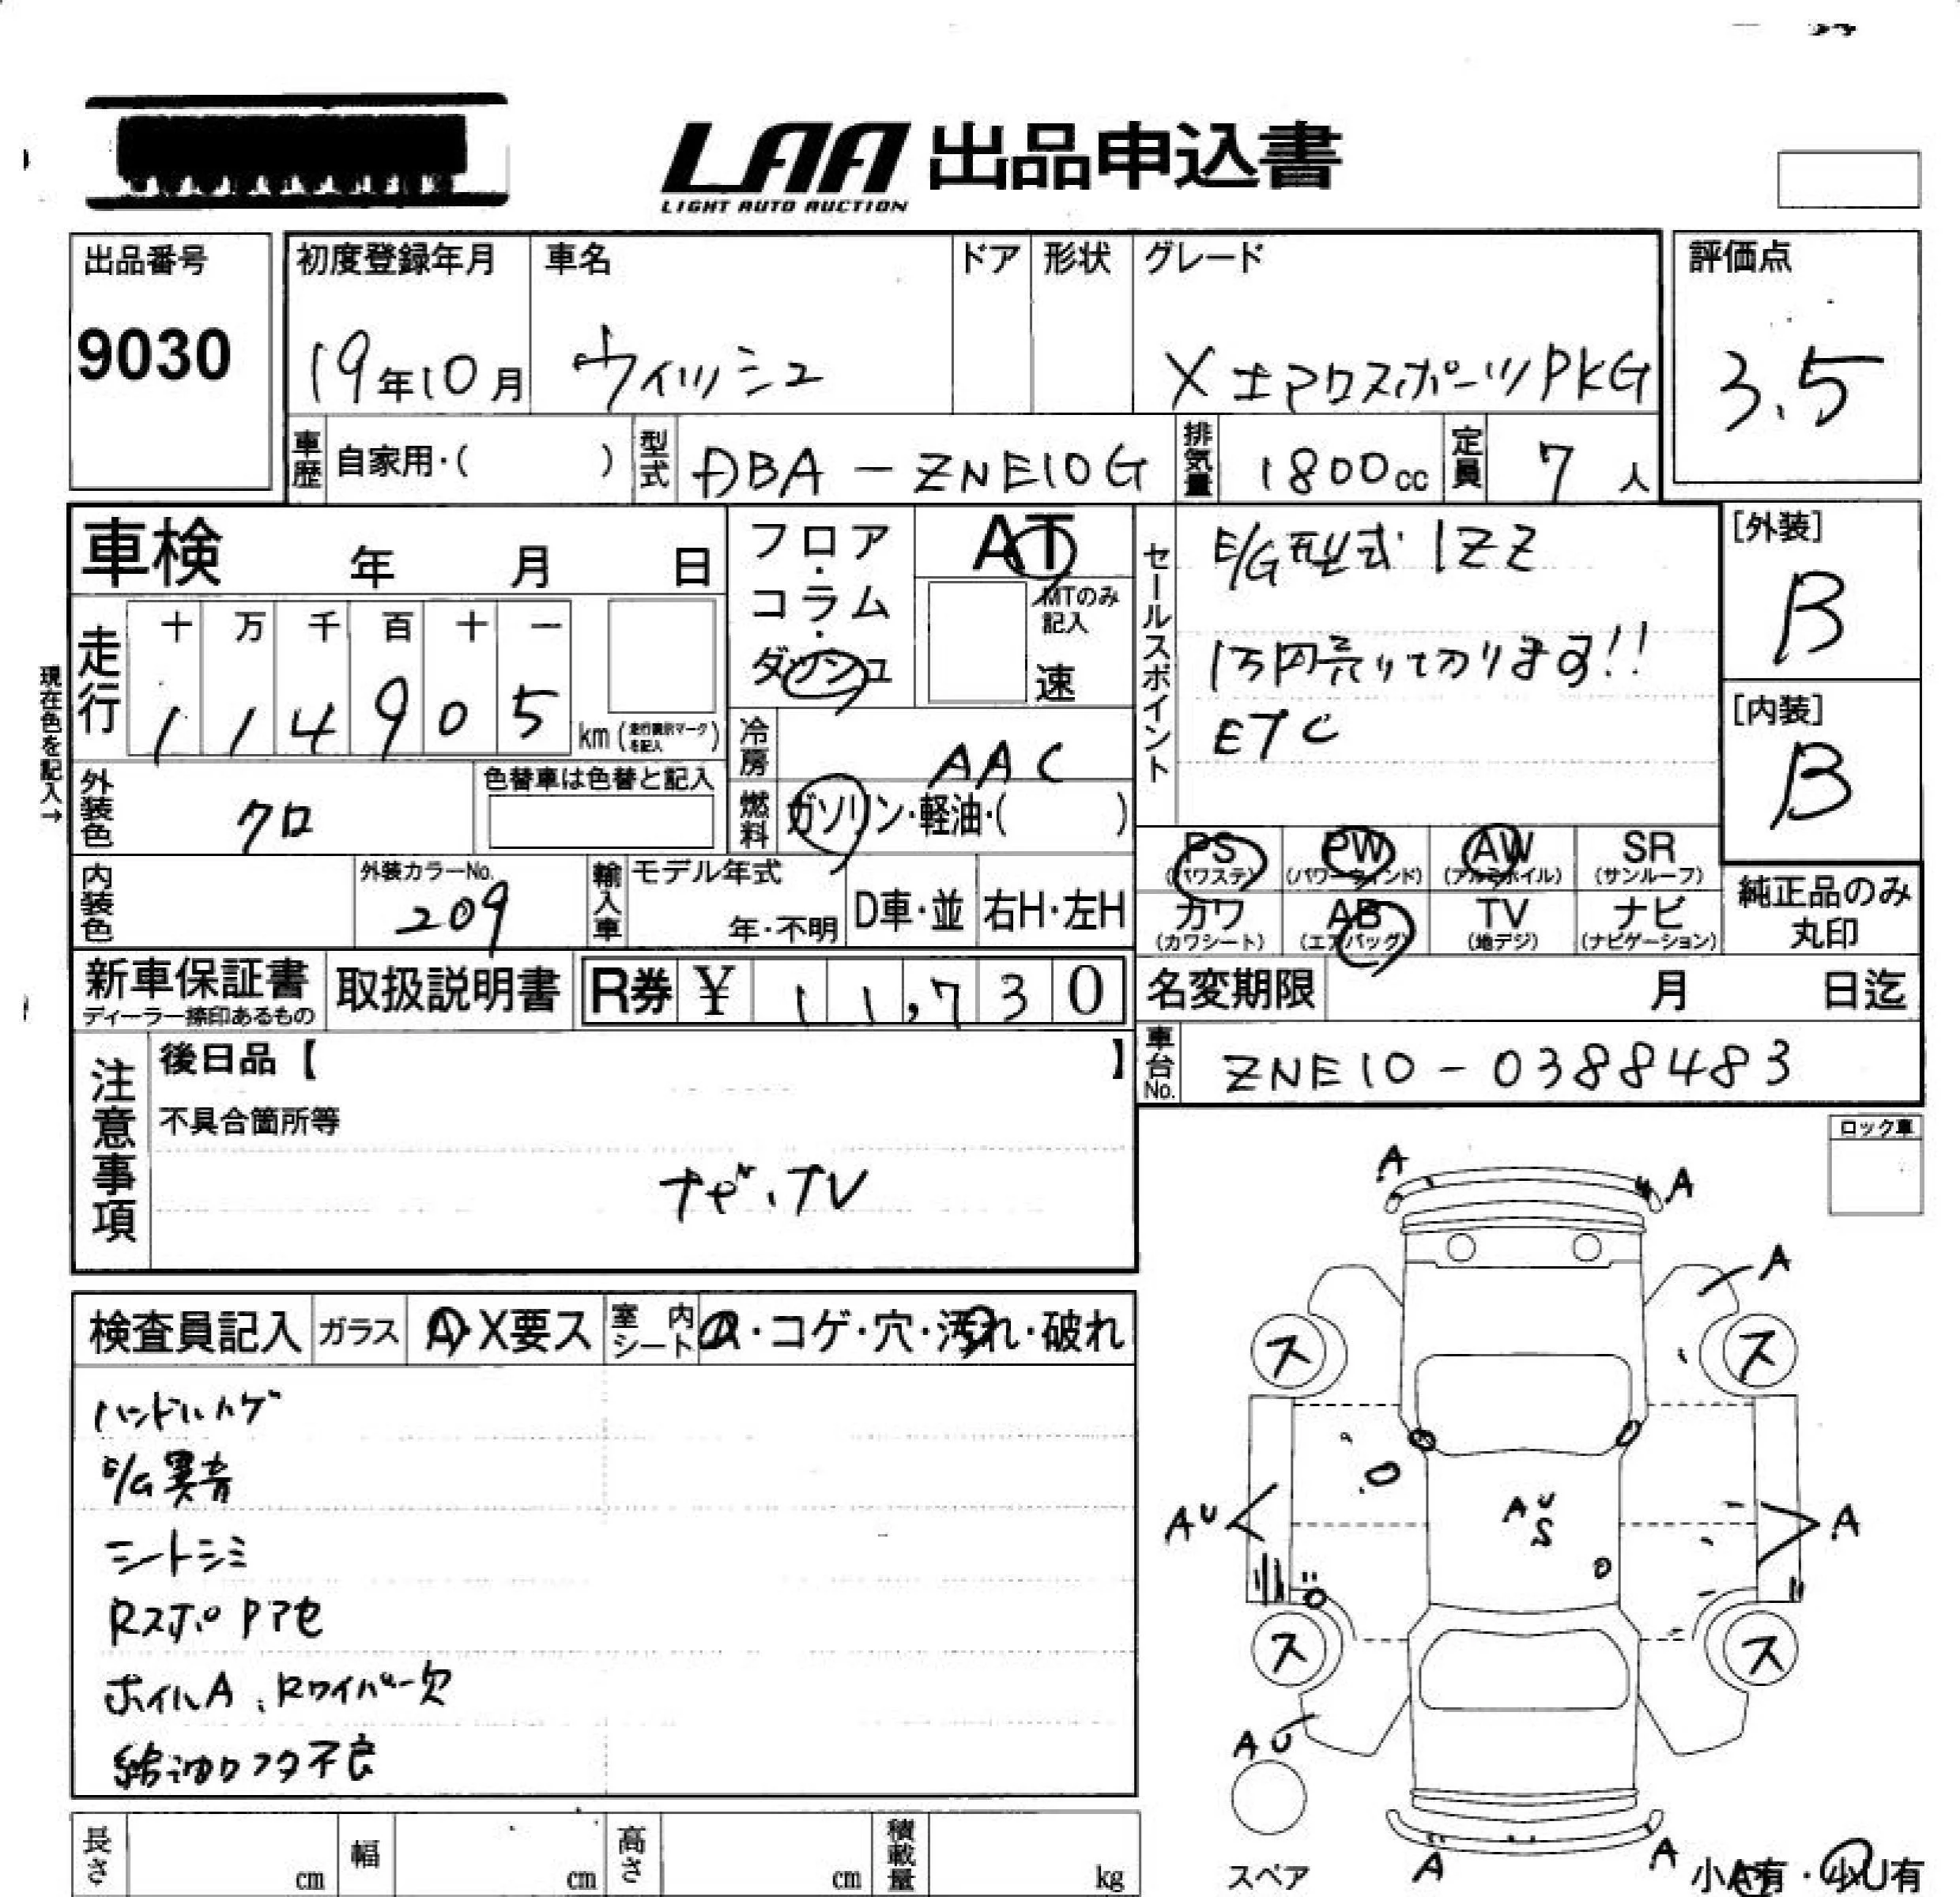 LAA 出品申込書
LIGHT AUTO AUCTION
出品番号
9030
初度登録年月
19年10月
車名
ウィッシュ
ドア
形状
グレード
X エアロスポーツPKG
評価点
3.5
車歴
自家用・( )
型式
DBA-ZNE10G
排気量
1800cc
定員
7人
車検 年 月 日
フロア・コラム・ダッシュ
AT
MTのみ記入
速
セールスポイント
E/G型式 1ZZ
1万円売り切ります!!
ETC
[外装]
B
[内装]
B
現在色を記入→
走行
十 万 千 百 十 一
1 1 4 9 0 5
km (走行選択マークを記入)
冷房
AAC
外装色
クロ
色替車は色替と記入
燃料
ガソリン・軽油・( )
PS (パワステ)
PW (パワーウィンド)
AW (アルミホイル)
SR (サンルーフ)
カワ (カワシート)
AB (エアバッグ)
TV (地デジ)
ナビ (ナビゲーション)
純正品のみ
丸印
内装色
外装カラーNo.
209
輸入車
モデル年式
年・不明
D車・並
右H・左H
新車保証書
ディーラー捺印あるもの
取扱説明書
R券 ¥ 11,730
名変期限 月 日迄
車台No.
ZNE10-0388483
注意事項
後日品【 】
不具合箇所等
ナビ、TV
ロック車
検査員記入
ガラス
A・X要ス
室内シート
・コゲ・穴・汚れ・破れ
ハンドルハゲ
E/G異音
シートシミ
RスポPアセ
ホイルA、Rワイパー欠
給油口フタ不良
A
A
A
ス
ス
AU
AU
S
A
ス
ス
AU
スペア
A
A
小A有・小U有
長さ cm
幅 cm
高さ cm
積載量 kg